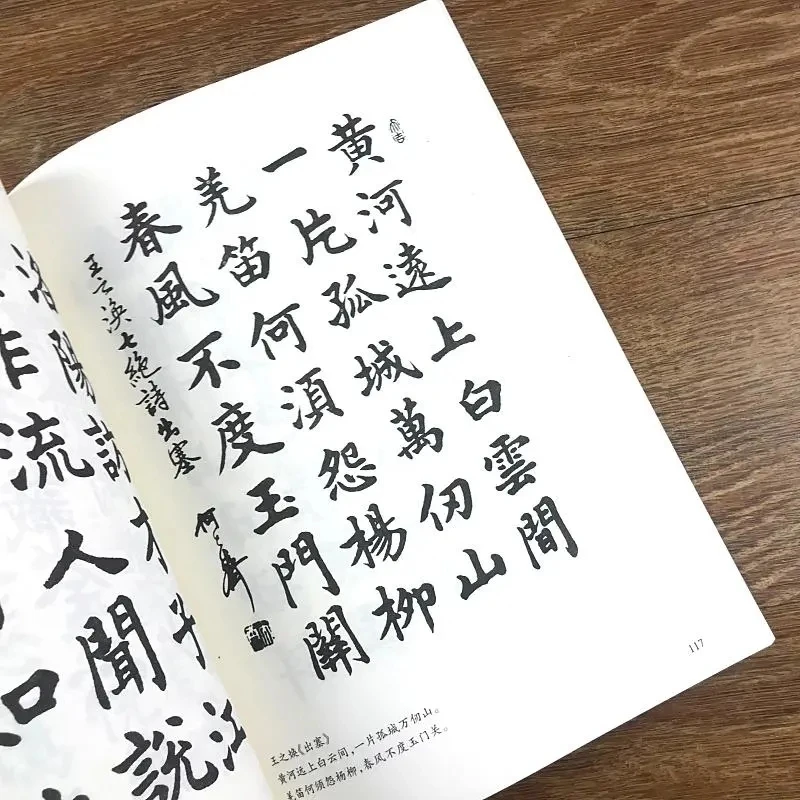 黄河遠上白雲間
一片孤城萬仞山
羌笛何須怨楊柳
春風不度玉門關
王之渙七絕詩出塞 何
王之焕《出塞》
黄河远上白云间,一片孤城万仞山。
羌笛何须怨杨柳,春风不度玉门关。
117
洛陽訪才子江
作流人聞說